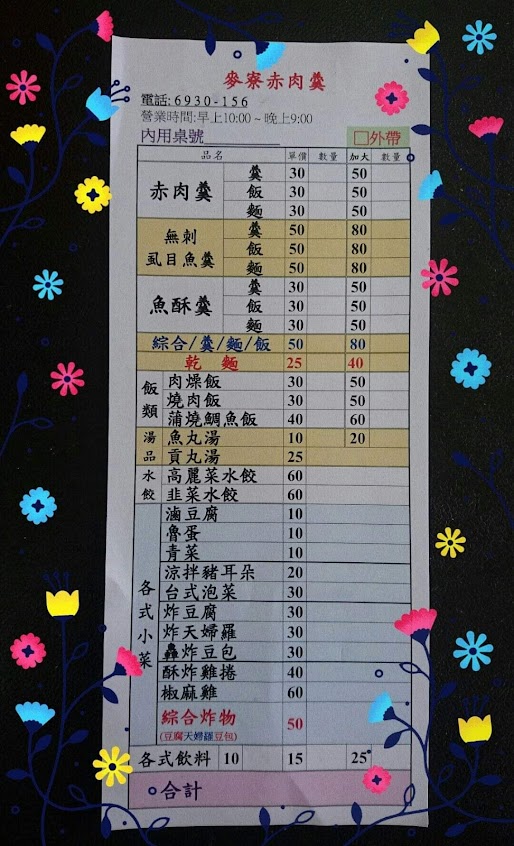 麥寮赤肉羹
電話:6930-156
營業時間:早上10:00~晚上9:00
內用桌號
□外帶
品名 單價 數量 加大 數量
赤肉羹 羹 30 50
飯 30 50
麵 30 50
無刺虱目魚羹 羹 50 80
飯 50 80
麵 50 80
魚酥羹 羹 30 50
飯 30 50
麵 30 50
綜合/羹/麵/飯 50 80
乾麵 25 40
飯類 肉燥飯 30 50
燒肉飯 30 50
蒲燒鯛魚飯 40 60
湯品 魚丸湯 10 20
貢丸湯 25
水餃 高麗菜水餃 60
韭菜水餃 60
各式小菜 滷豆腐 10
魯蛋 10
青菜 10
涼拌豬耳朵 20
台式泡菜 30
炸豆腐 30
炸天婦羅 30
炸豆包 30
酥炸雞捲 40
椒麻雞 60
綜合炸物 50
(豆腐天婦羅豆包)
各式飲料 10 15 25
合計